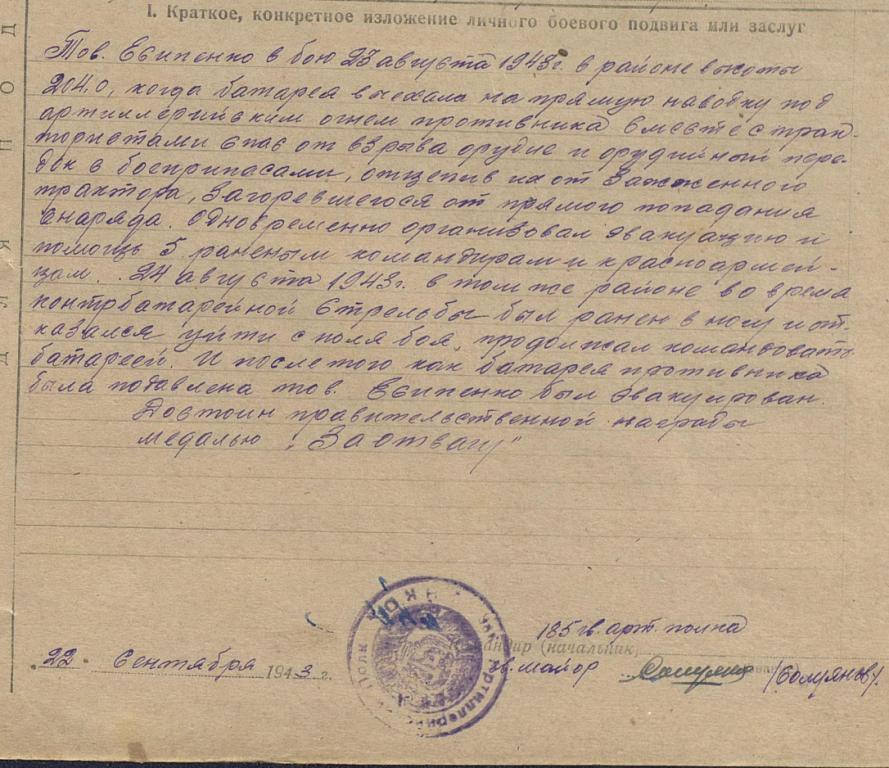 I. Краткое, конкретное изложение личного боевого подвига или заслуг
Тов. Есипенко в бою 23 августа 1943г. в районе высоты
204.0, когда батарея выехала на прямую наводку под
артиллерийским огнем противника вместе с тран-
портистами спас от взрыва орудие и орудийный пере-
док с боеприпасами, отцепив их от зажженного
трактора, загоревшегося от прямого попадания
снаряда. Одновременно организовал эвакуацию и
помощь 5 раненым командирам и красноармей-
цам. 24 августа 1943г. в том же районе во время
контрбатарейной стрельбы был ранен в ногу и от-
казался уйти с поля боя, продолжал командовать
батареей. И после того как батарея противника
была подавлена тов. Есипенко был эвакуирован.
Достоин правительственной награды
медалью "За отвагу"
185 гв. арт. полка
(начальник
22 сентября 1943 г.
гв. майор
НКО
Полк
Артиллерий